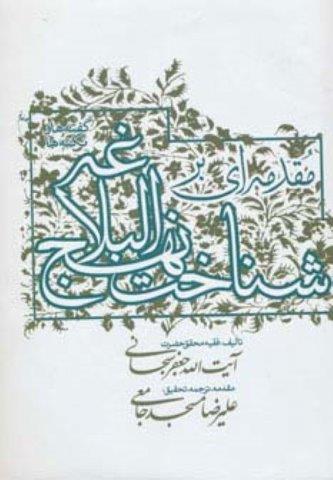 گفته‌ها و
نکته‌ها
مقدمه‌ای بر
شناخت نهج البلاغه
تألیف: فقیه محقق حضرت
آیت الله جعفر سبحانی
مقدمه، ترجمه، تحقیق:
علیرضا مسجدجامعی